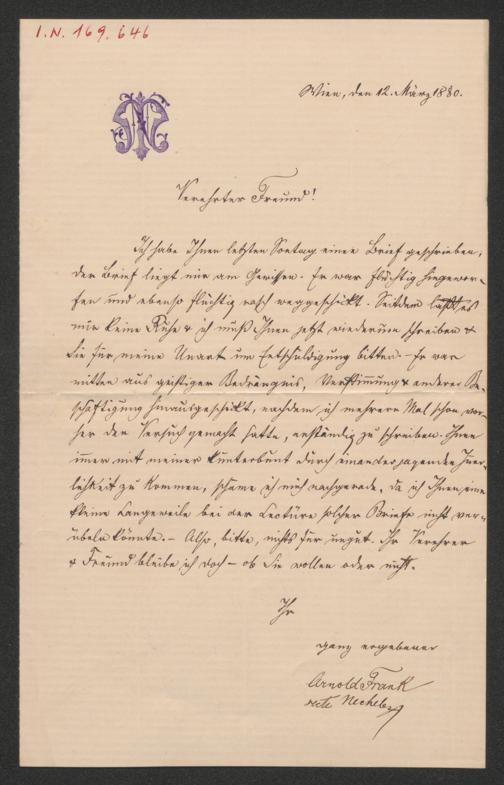 I.N. 169.646
Wien, den 12. März 1880.
Verehrter Freund!
Ich habe Ihnen letzten Sontag einen Brief geschrieben,
der Brief liegt mir am Gewissen. Er war flüchtig hingewor-
fen und ebenso flüchtig rasch weggeschickt. Seitdem läßt es
mir keine Ruhe & ich muß Ihnen jetzt wiederum schreiben &
Sie für meine Unart um Entschuldigung bitten. – Er war
mitten aus geistiger Bedrängnis, Verstimmung & anderer Be-
schäftigung hinausgeschickt, nachdem ich mehrere Mal schon vor-
her den Versuch gemacht hatte, anständig zu schreiben. Ihnen
immer mit meiner kunterbunt durch einander jagenden Inner-
lichkeit zu kommen, schäme ich mich nachgerade, da ich Ihnen eine
kleine Langeweile bei der Lectüre solcher Briefe nicht ver-
übeln könnte. – Also, bitte, nichts für ungut. Ihr Verehrer
& Freund bleibe ich doch – ob Sie wollen oder nicht.
Ihr
ganz ergebener
Arnold Frank
recte